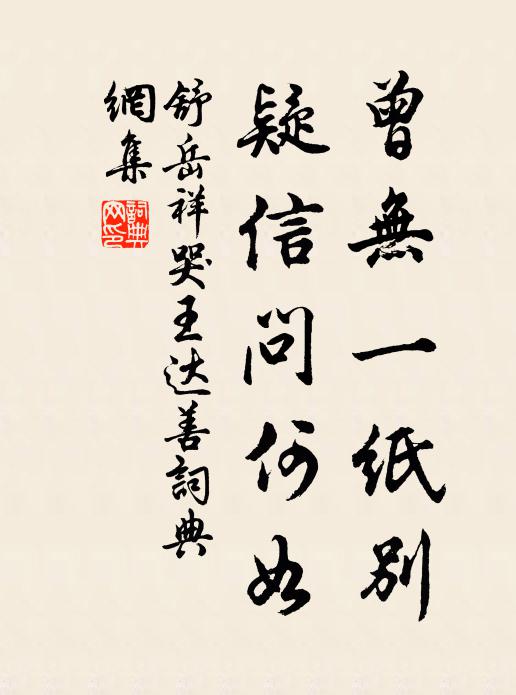 曾無一紙別
疑信問何如
舒岳祥哭王达善詞典
網集
詞典
网印